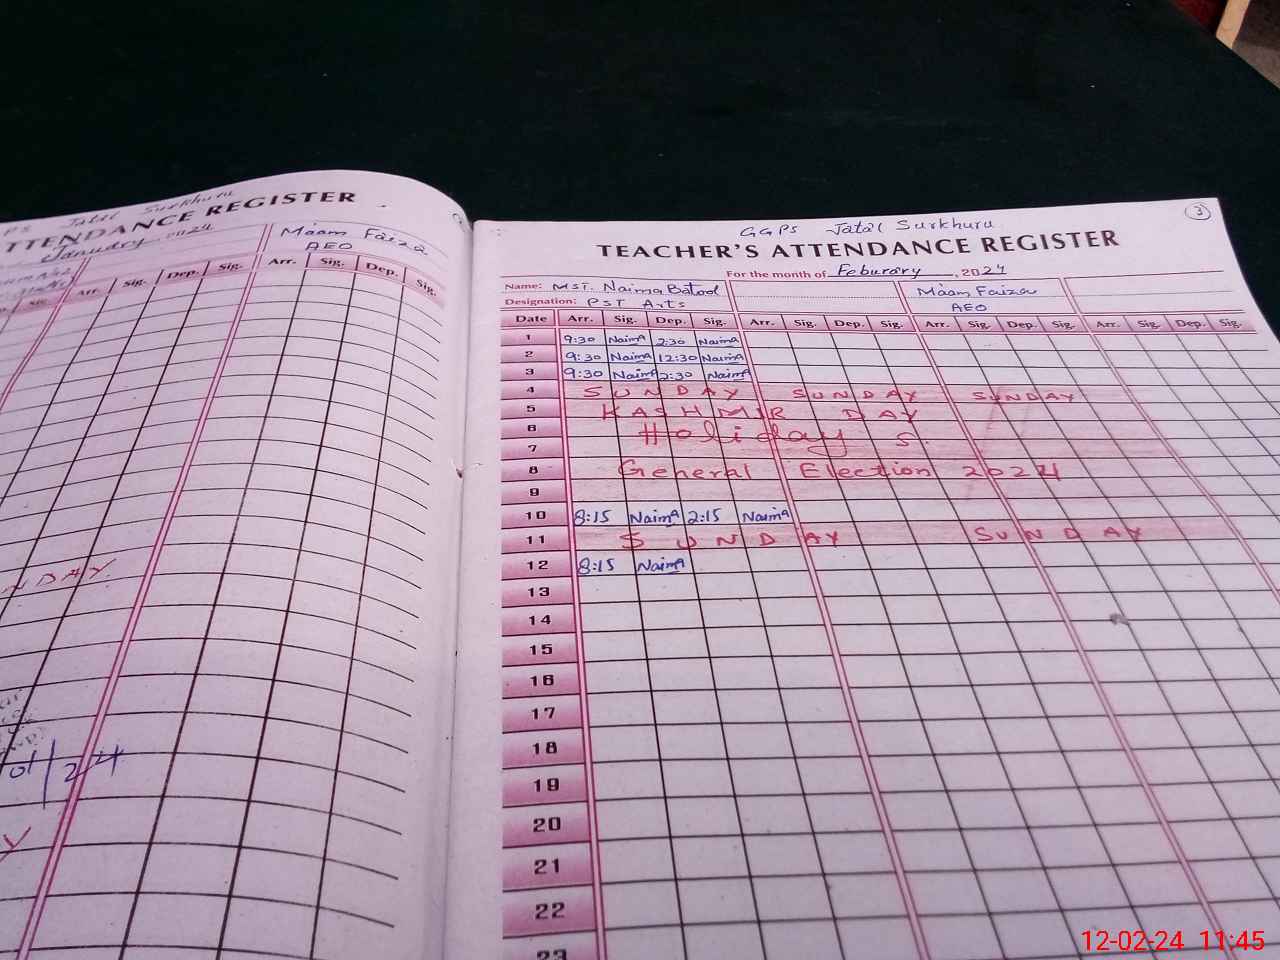 PS Jatal Surkhuru
TTENDANCE REGISTER
January 2024
Maam Faiza
AEO
Sig. Arr. Sig. Dep. Sig. Arr. Sig. Dep. Sig.
NDAY
01/24
3
GGPS Jatal Surkhuru
TEACHER'S ATTENDANCE REGISTER
For the month of Feburary, 2024
Name: MST. Naima Batool
Maam Faiza
Designation: PST Arts
AEO
Date Arr. Sig. Dep. Sig. Arr. Sig. Dep. Sig. Arr. Sig. Dep. Sig. Arr. Sig. Dep. Sig.
1 9:30 Naima 2:30 Naima
2 9:30 Naima 12:30 Naima
3 9:30 Naima 2:30 Naima
4 SUNDAY SUNDAY SUNDAY
5 KASHMIR DAY
6 Holiday s.
7
8 General Election 2024
9
10 8:15 Naima 2:15 Naima
11 SUNDAY SUNDAY
12 8:15 Naima
13
14
15
16
17
18
19
20
21
22
23
12-02-24 11:45